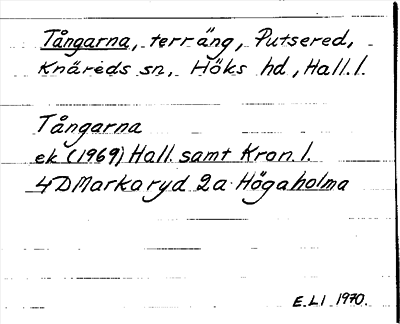 Tångarna, terräng, Putsered,
Knäreds sn, Höks hd, Hall. l.
Tångarna
ek (1969) Hall. samt Kron. l.
4D Markaryd 2a Högaholma
E.L! 1970.